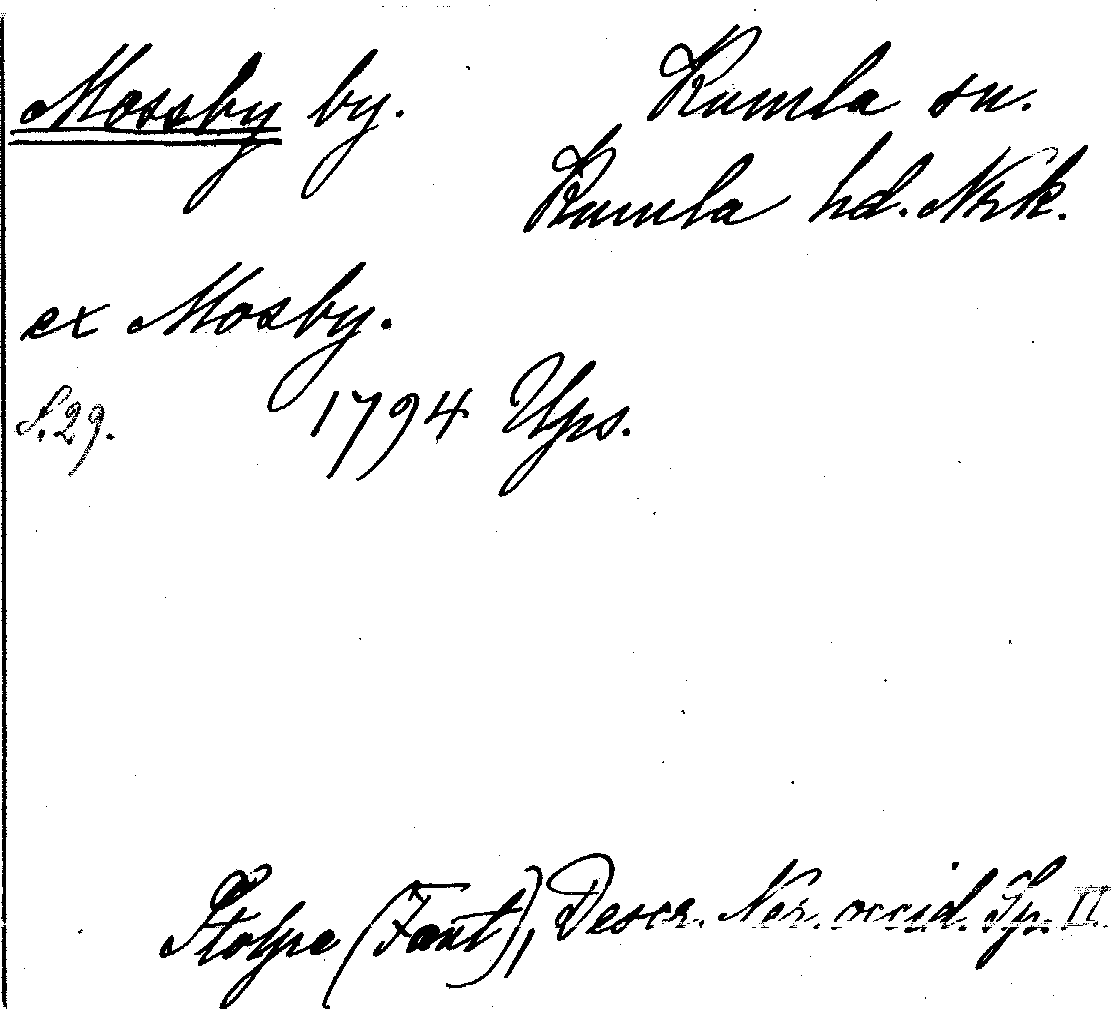 Mossby by. Kumla sn.
Kumla hd. Nrk.
ex Mosby.
S. 29. 1794 Ups.
Stolpe (Fant), Descr. Ner. occid. Sp. II.